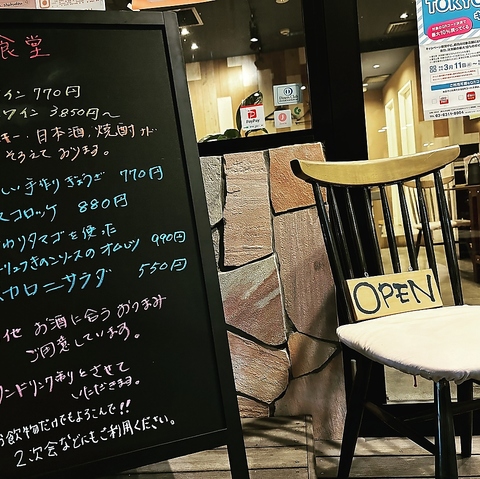 食堂
イン 770円
ワイン 3850円〜
キー、日本酒、焼酎が
そろえております。
しい手作りぎょうざ 770円
スコロッケ 880円
わりタマゴを使った
ーリュつきのソースのオムレツ 990円
カロニサラダ 550円
他 お酒に合うおつまみ
ご用意しています。
ワンドリンク制とさせて
いただきます。
お飲物だけでもよろこんで!!
2次会などにもご利用ください。
PayPay
OPEN
TOKYO
最大10%
3月11日
03-6311-8954